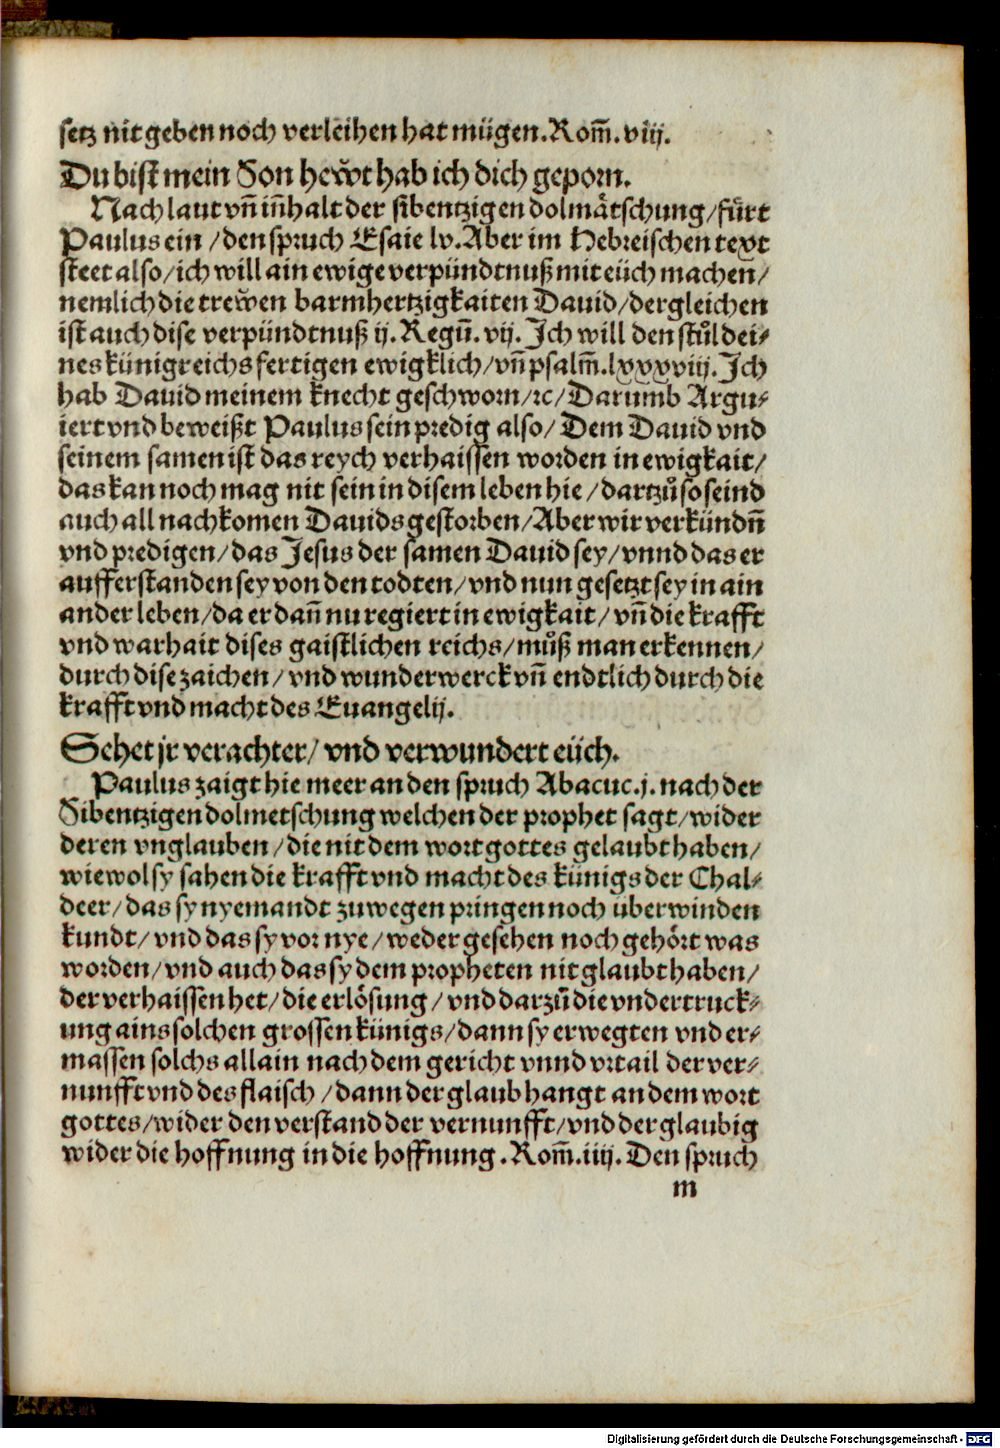 setz nit geben noch verleihen hat mügen. Rom̃. viij.
Du bist mein Son hewͤt hab ich dich geporn.
Nach laut vñ iñhalt der sibentzigen dolmätschung/ fürt
Paulus ein/ den spruch Esaie lv. Aber im Hebreischen text
steet also/ ich will ain ewige verpündtnuß mit eüch macheñ/
nemlich die trewͤen barmhertzigkaiten Dauid/ dergleichen
ist auch dise verpündtnuß ij. Regũ. vij. Ich will den stůl dei⸗
nes künigreichs fertigen ewigklich/ vñ psalm̃. lxxxviij. Ich
hab Dauid meinem knecht geschworn/ ꝛc/ Darumb Argu⸗
iert vnd beweißt Paulus sein predig also/ Dem Dauid vnd
seinem samen ist das reych verhaissen worden in ewigkait/
das kan noch mag nit sein in disem leben hie/ dartzů so seind
auch all nachkomen Dauids gestorben/ Aber wir verkündñ
vnd predigen/ das Jesus der samen Dauid sey/ vnnd das er
aufferstanden sey von den todten/ vnd nun gesetzt sey in ain
ander leben/ da er dañ nu regiert in ewigkait/ vñ die krafft
vnd warhait dises gaistlichen reichs/ můß man erkennen/
durch dise zaichen/ vnd wunderwerck vñ endtlich durch die
krafft vnd macht des Euangelij.
Sehet jr verachter/ vnd verwundert eüch.
Paulus zaigt hie meer an den spruch Abacuc. j. nach der
Sibentzigen dolmetschung welchen der prophet sagt/ wider
deren vnglauben/ die nit dem wort gottes gelaubt haben/
wiewol sy sahen die krafft vnd macht des künigs der Chal⸗
deer/ das sy nyemandt zuwegen pringen noch überwinden
kundt/ vnd das sy vor nye/ weder gesehen noch gehört was
worden/ vnd auch das sy dem propheten nit glaubt haben/
der verhaissen het/ die erlösung/ vnd darzů die vndertruck⸗
ung ains solchen grossen künigs/ dann sy erwegten vnd er⸗
massen solchs allain nach dem gericht vnnd vrtail der ver⸗
nunfft vnd des flaisch/ dann der glaub hangt an dem wort
gottes/ wider den verstand der vernunfft/ vnd der glaubig
wider die hoffnung in die hoffnung. Rom̃. iiij. Den spruch
m
Digitalisierung gefördert durch die Deutsche Forschungsgemeinschaft - DFG